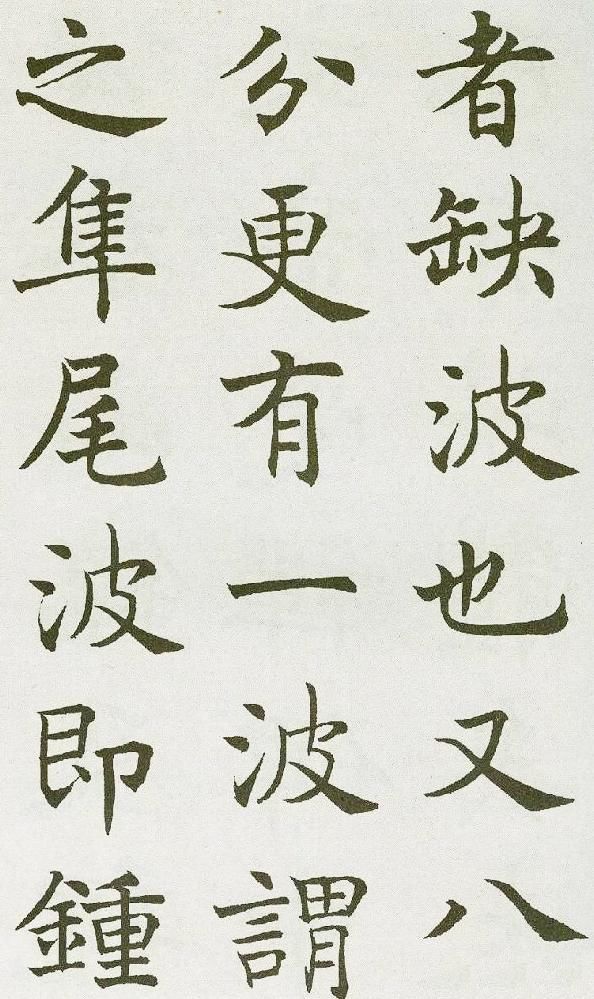 者缺波也又八
分更有一波謂
之隼尾波即鍾